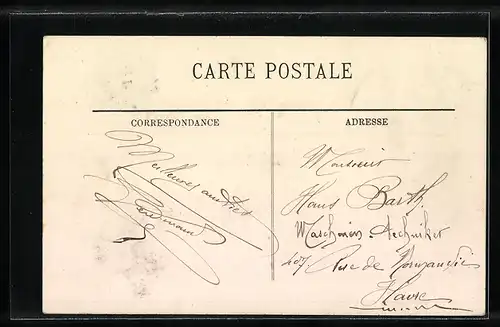 CARTE POSTALE
CORRESPONDANCE
ADRESSE
Meilleures amitiés
Monsieur
Hans Barth
Maschinen-Techniker
Rue de Normandie
Havre